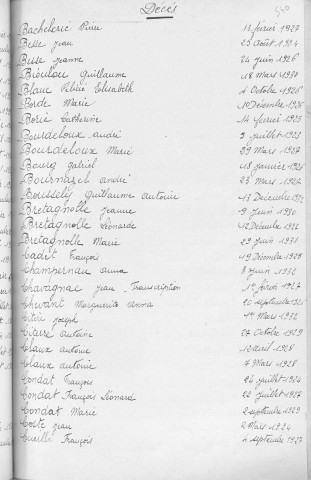 Décès
Bachelerie Pierre 11 février 1927
Besse Jean 25 Août 1924
Besse Jeanne 24 juin 1926
Guillaume 18 Mars 1930
Blanc Elisabeth 4 Octobre 1926
Borde Marie 10 Décembre 1926
Borie Catherine 14 février 1925
Bourdeloux André 9 juillet 1928
Bourdeloux Marie 29 Mars 1927
Bourg Gabriel 18 janvier
Bournazel André 23 Mars 1927
Guillaume Antoine 13 Décembre
Bretagnolle Jeanne 9 juin 1930
Bretagnolle Léonarde 12 Décembre
Bretagnolle Marie 29 juin 1931
Cadet François 19 Décembre
Champernau Anna 8 juin 1932
Chavagnac Jean - Transcription 1er février 1927
Marguerite Anna 20 septembre
Joseph 1er Mars 1932
Antoine 27 Octobre 1929
Claux Antoine 12 Avril 1928
Claux Antoine 7 Mars 1928
Condat François 24 juillet 1924
Condat François Léonard 22 juillet 1927
Condat Marie 2 septembre 1929
Coste Jean 2 Mars 1924
Cueille François 4 septembre 1927